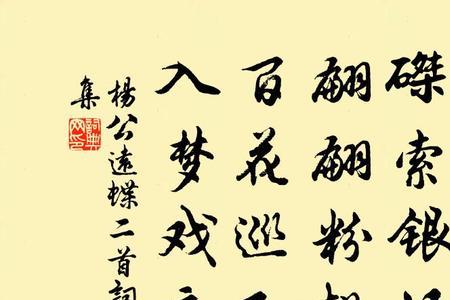 磔索银
翩翩粉
百花巡
入梦戏
楊公遠蝶二首詞
集